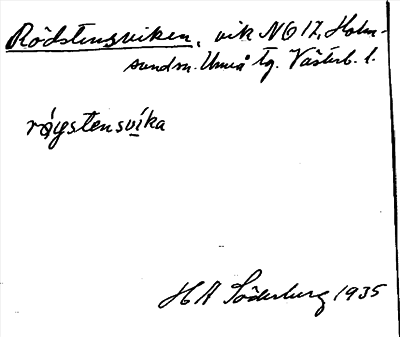 Rödstensviken, vik NO IZ, Holm-
sundsn. Umeå tg. Västerb. l.
røystensvika
H A Söderberg 1935